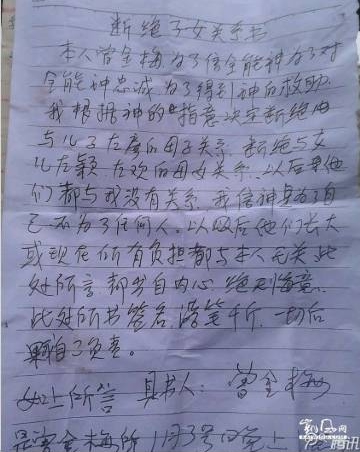 断绝子女关系书
本人曾金梅为了信全能神为了对
全能神忠诚为了得到神的救助
我根据神的指意决定断绝由
与儿子左彦的母子关系.断绝与女
儿左颖左欢的母女关系.以后里他
们都与我没有关系.我信神是为了自
己不为了任何人.以及后他们长大
或现在所有负担都与本人无关.此
处所言都出自内心.绝不悔意.
此处所书签名.落笔千斤.一切后
果自了负责.
如上所言 具书人: 曾金梅
是曾金梅所 1月3号 晚上
腾讯